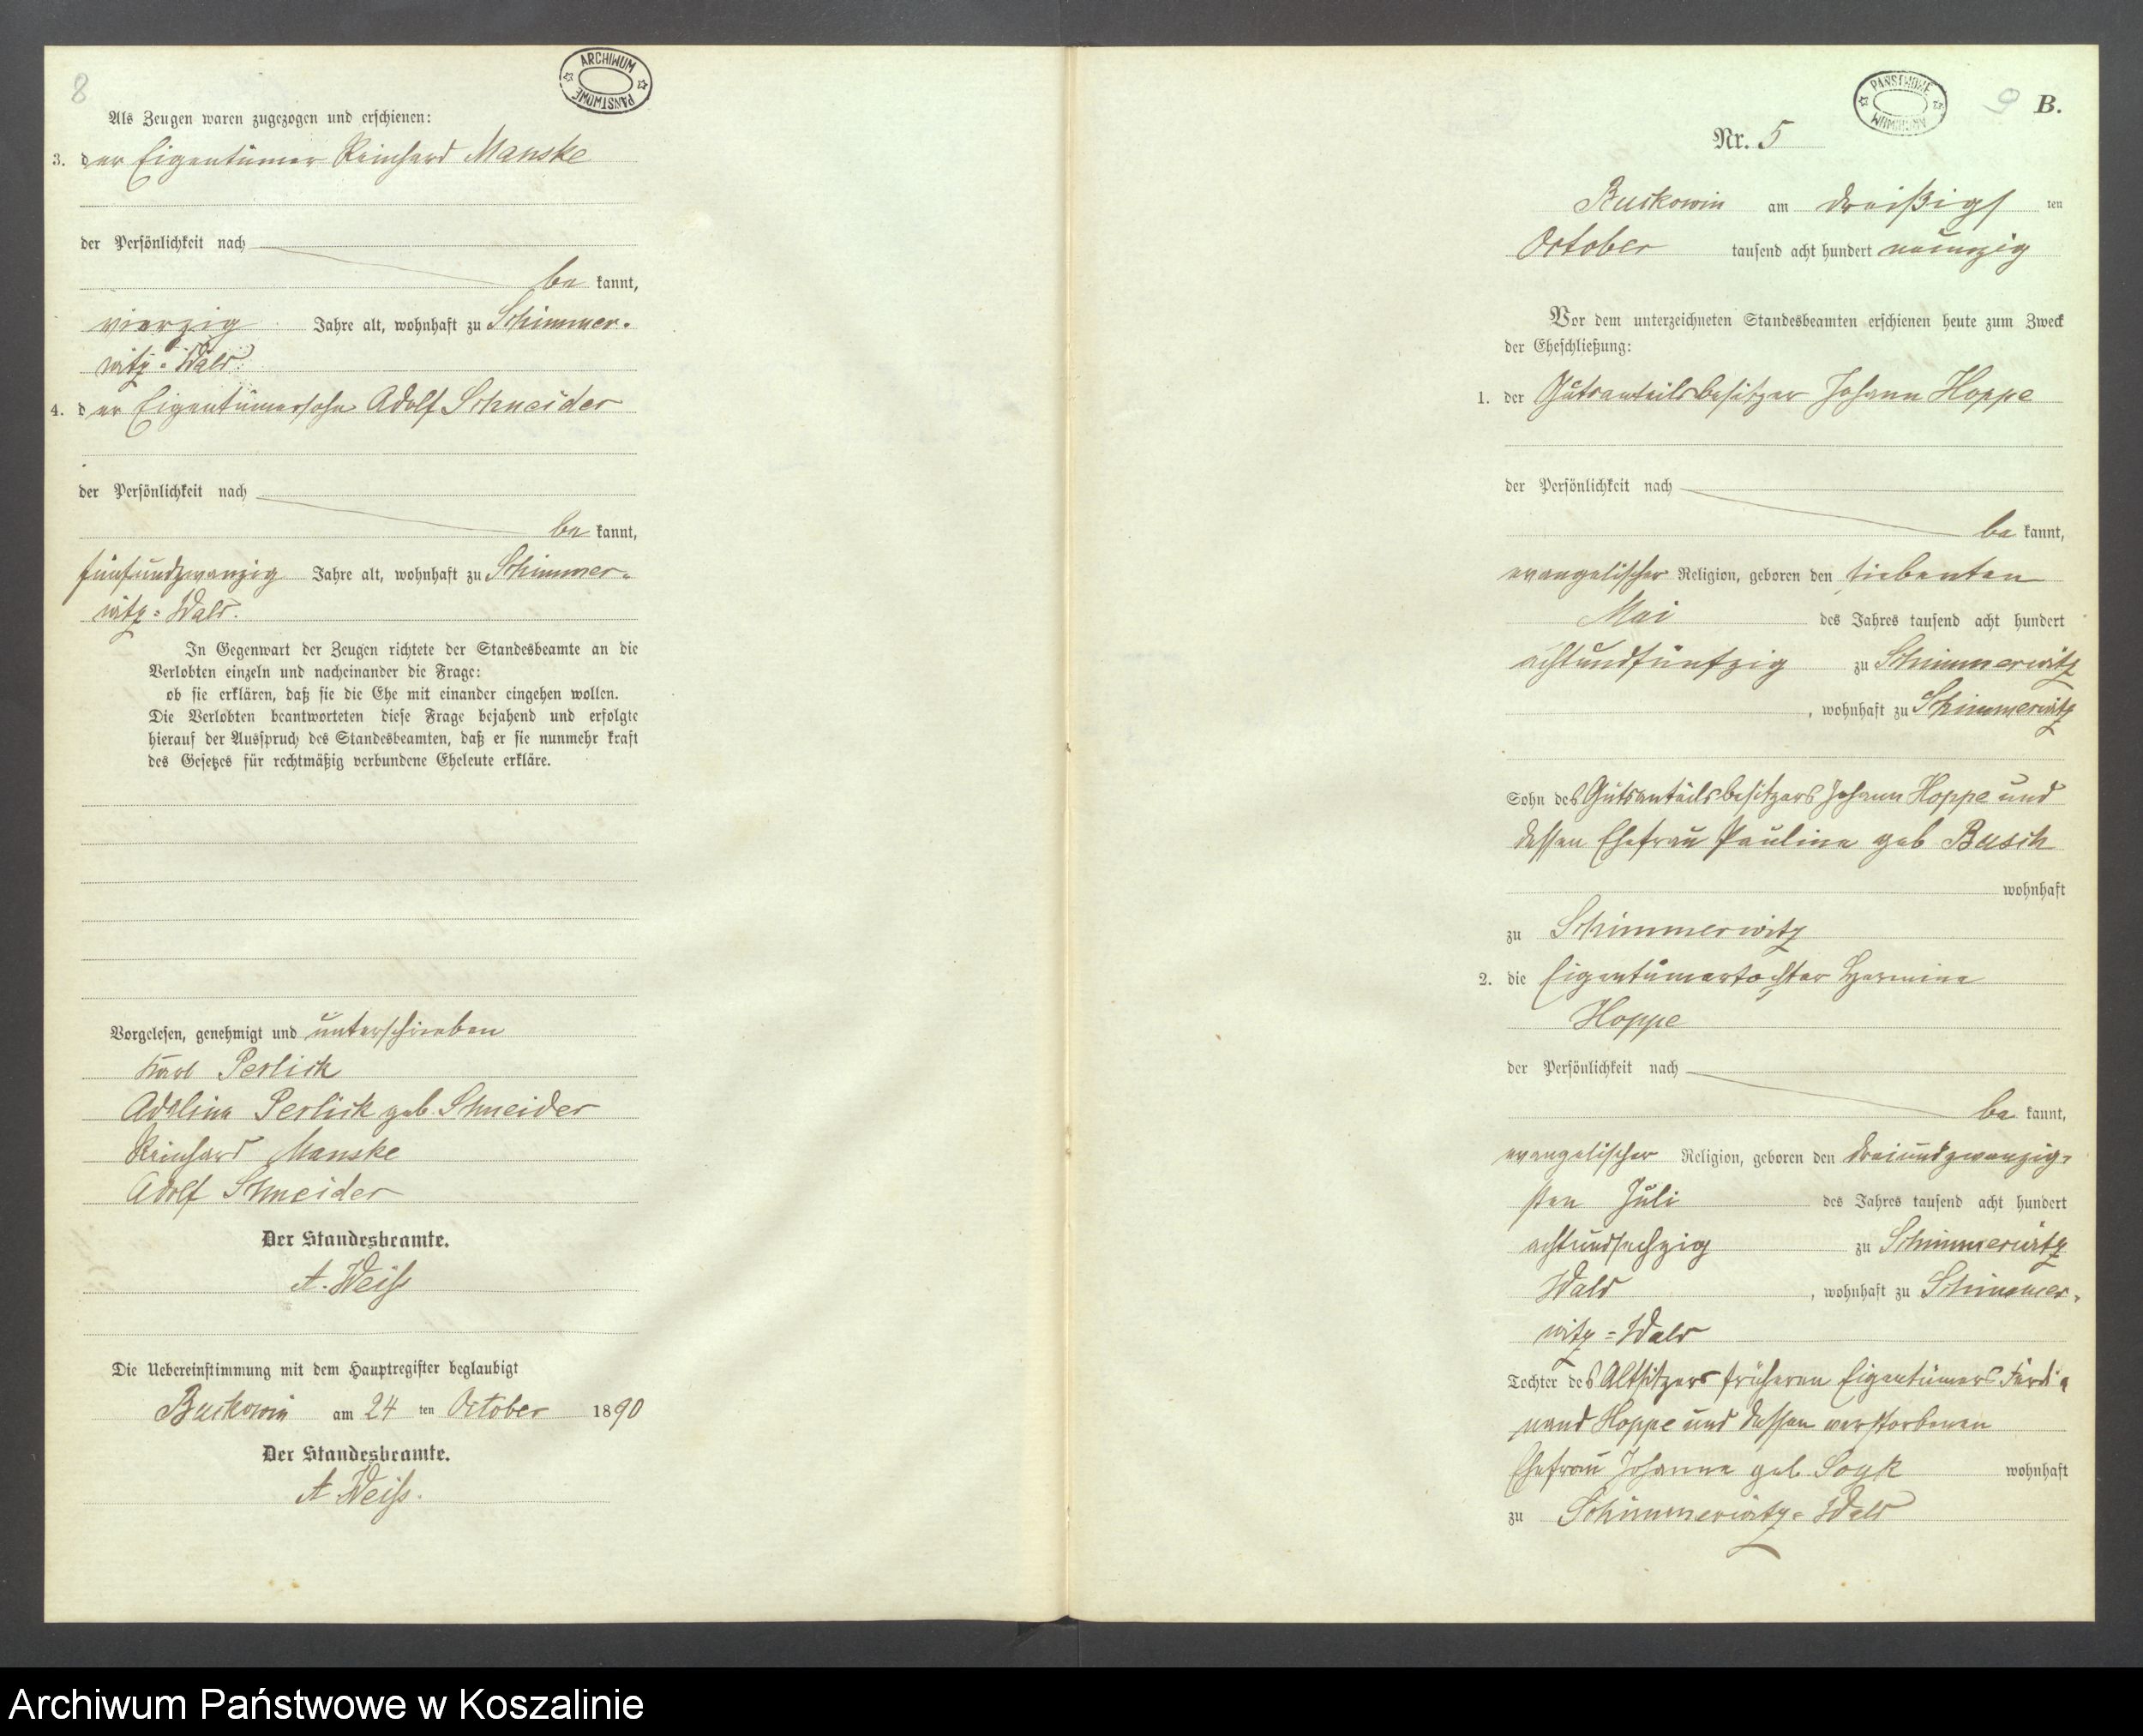 8
ARCHIWUM PAŃSTWOWE
Als Zeugen waren zugezogen und erschienen:
3. der Eigentümer Reinhard Manske
der Persönlichkeit nach
bekannt,
vierzig Jahre alt, wohnhaft zu Schimmer-
witz-Wald.
4. der Eigentümersohn Adolf Schneider
der Persönlichkeit nach
bekannt,
fünfundzwanzig Jahre alt, wohnhaft zu Schimmer-
witz-Wald.
In Gegenwart der Zeugen richtete der Standesbeamte an die
Verlobten einzeln und nacheinander die Frage:
ob sie erklären, daß sie die Ehe mit einander eingehen wollen.
Die Verlobten beantworteten diese Frage bejahend und erfolgte
hierauf der Ausspruch des Standesbeamten, daß er sie nunmehr kraft
des Gesetzes für rechtmäßig verbundene Eheleute erkläre.
Vorgelesen, genehmigt und unterschrieben
Karl Perlick
Adeline Perlick geb. Schneider
Reinhard Manske
Adolf Schneider
Der Standesbeamte.
A. Weiß
Die Uebereinstimmung mit dem Hauptregister beglaubigt
Buckowin am 24 ten October 1890
Der Standesbeamte.
A. Weiß.
PAŃSTWOWE ARCHIWUM
9 B.
Nr. 5
Buckowin am dreißigs ten
October tausend acht hundert neunzig
Vor dem unterzeichneten Standesbeamten erschienen heute zum Zweck
der Eheschließung:
1. der Gutsanteilsbesitzer Johann Hoppe
der Persönlichkeit nach
bekannt,
evangelischer Religion, geboren den siebenten
Mai des Jahres tausend acht hundert
achtundfünfzig zu Schimmerwitz
, wohnhaft zu Schimmerwitz
Sohn des Gutsanteilsbesitzers Johann Hoppe und
dessen Ehefrau Pauline geb Busch
wohnhaft
zu Schimmerwitz
2. die Eigentümertochter Hermine
Hoppe
der Persönlichkeit nach
bekannt,
evangelischer Religion, geboren den dreiundzwanzig-
sten Juli des Jahres tausend acht hundert
achtundsechzig zu Schimmerwitz
Wald , wohnhaft zu Schimmer-
witz-Wald
Tochter des Altsitzers früheren Eigentümers Ferdi-
nand Hoppe und dessen verstorbenen
Ehefrau Johanne geb. Soyk wohnhaft
zu Schimmerwitz-Wald
Archiwum Państwowe w Koszalinie